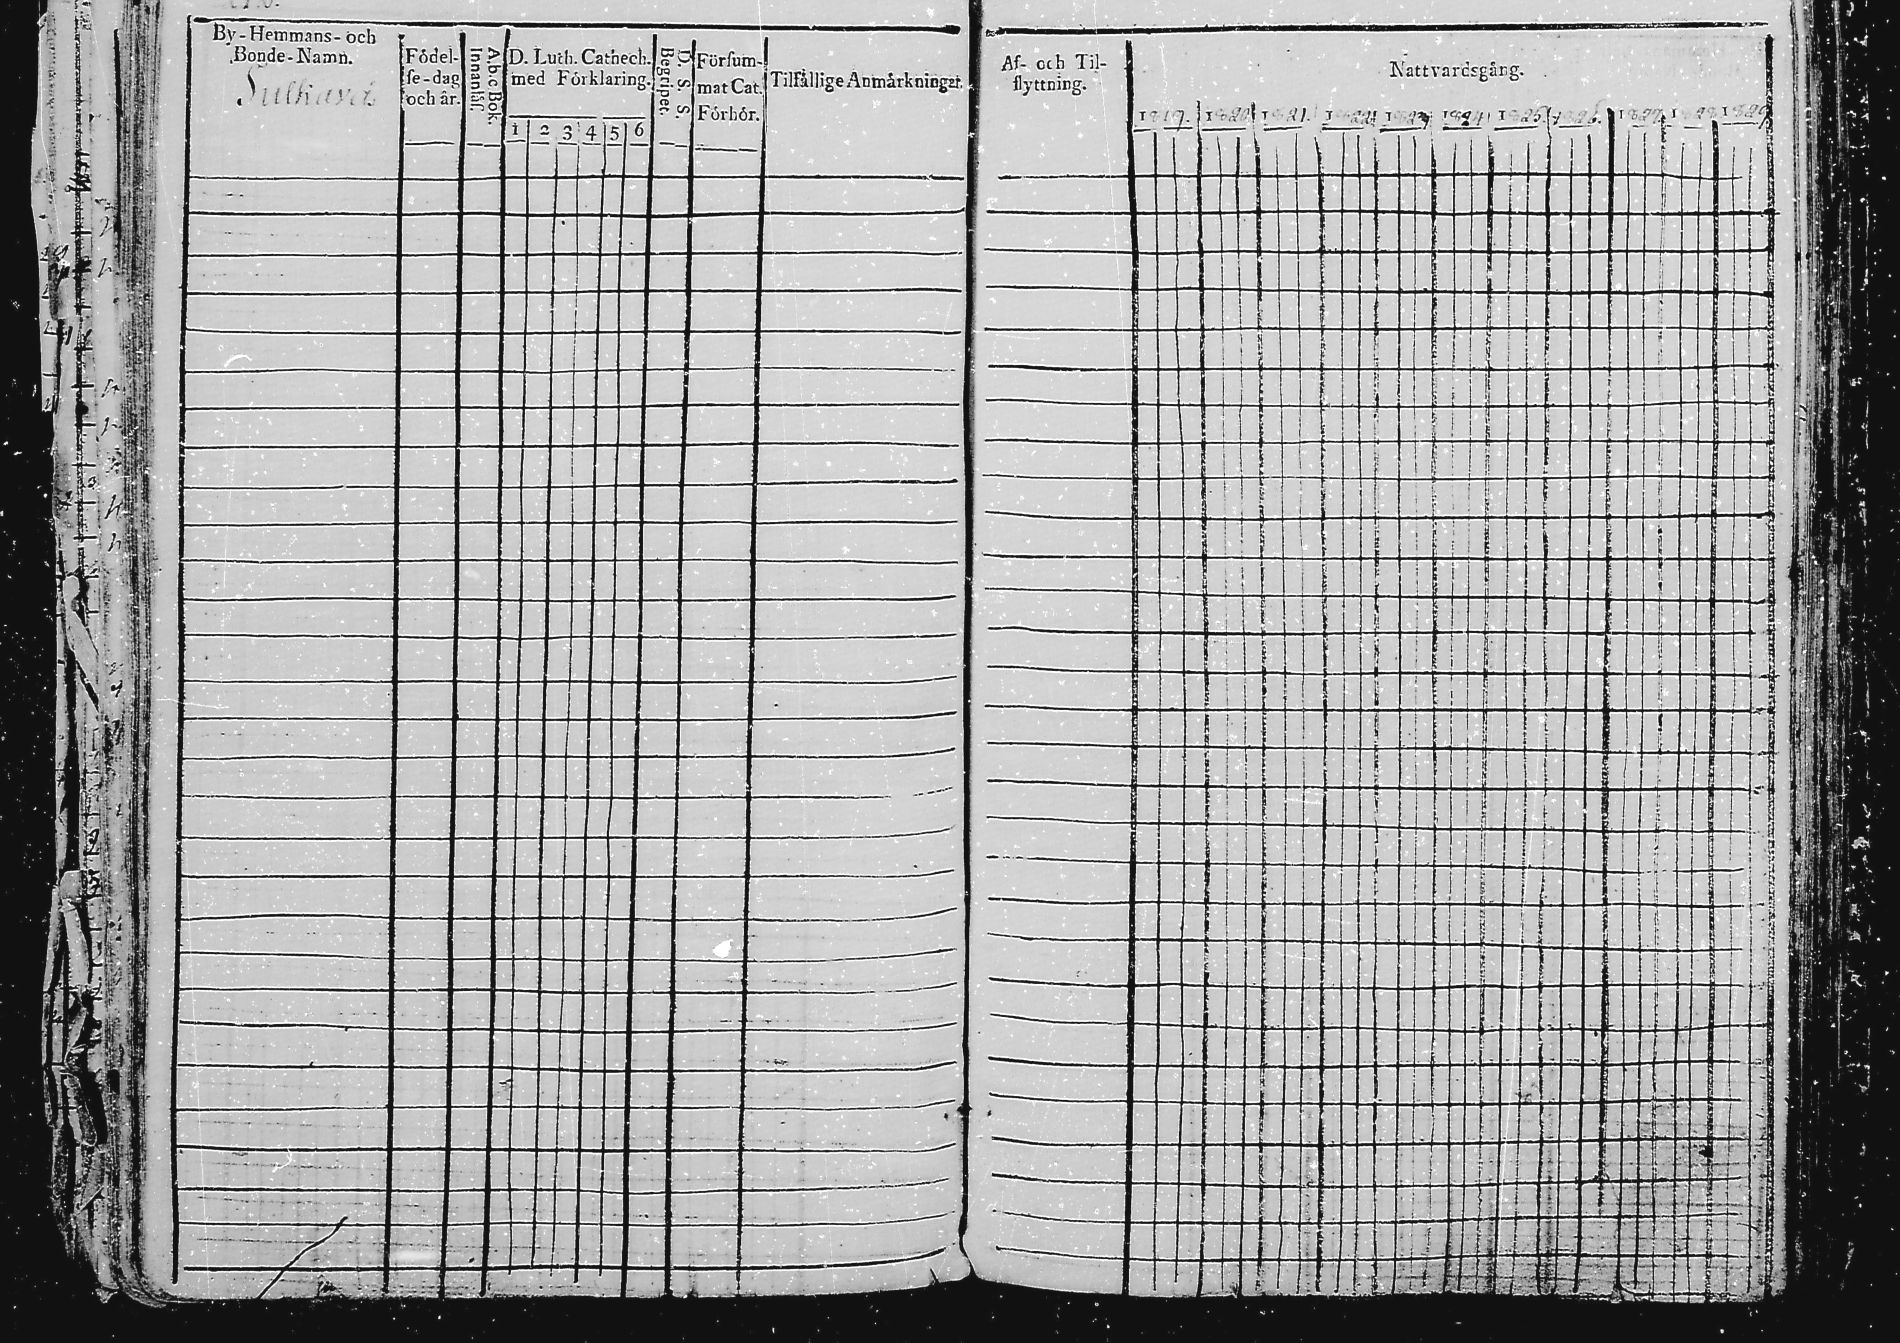 By-Hemmans- och
Bonde-Namn.
Sulkava
Födel-
se-dag
och år.
A.b.c Bok.
Innanläs.
D. Luth. Cathech.
med Förklaring.
1 2 3 4 5 6
D. S. S.
Begripet.
Försum-
mat Cat.
Förhör.
Tilfällige Anmärkningar.
Af- och Til-
flyttning.
Nattvardsgång.
1819. 1820 1821. 1822 1823 1824 1825 1826. 1827 1828 1829